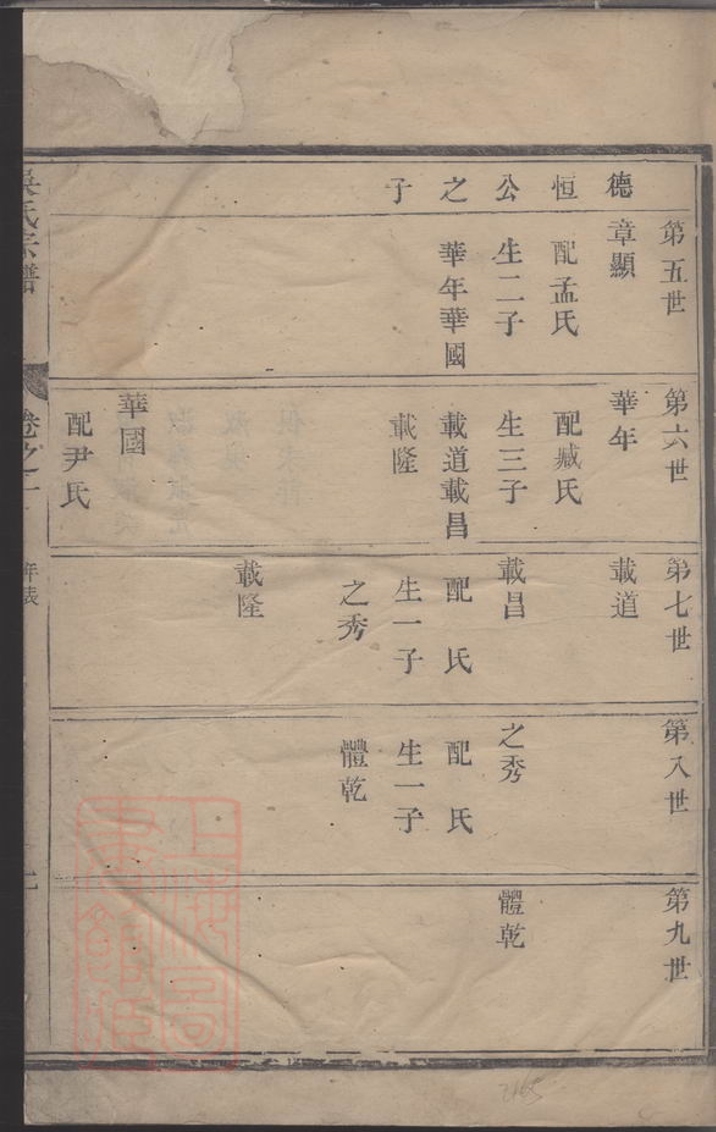 德恒公之子
第五世
章顯
配孟氏
生二子
華年華國
第六世
華年
配臧氏
生三子
載道載昌
載隆
華國
配尹氏
第七世
載道
載昌
配 氏
生一子
之秀
載隆
第八世
之秀
配 氏
生一子
體乾
第九世
體乾
吳氏宗譜
卷之
年表